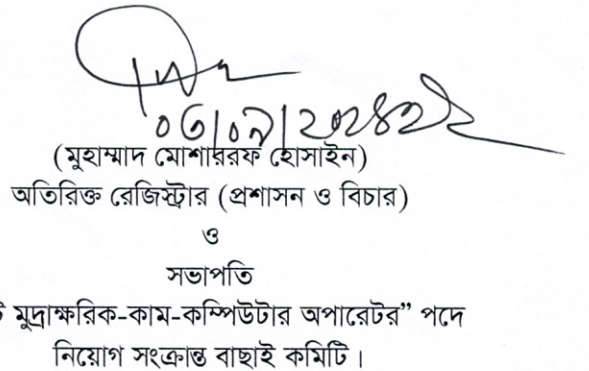 ০৩/০৯/২০২৪খ্রিঃ
(মুহাম্মাদ মোশাররফ হোসাইন)
অতিরিক্ত রেজিস্ট্রার (প্রশাসন ও বিচার)
ও
সভাপতি
মুদ্রাক্ষরিক-কাম-কম্পিউটার অপারেটর” পদে
নিয়োগ সংক্রান্ত বাছাই কমিটি।